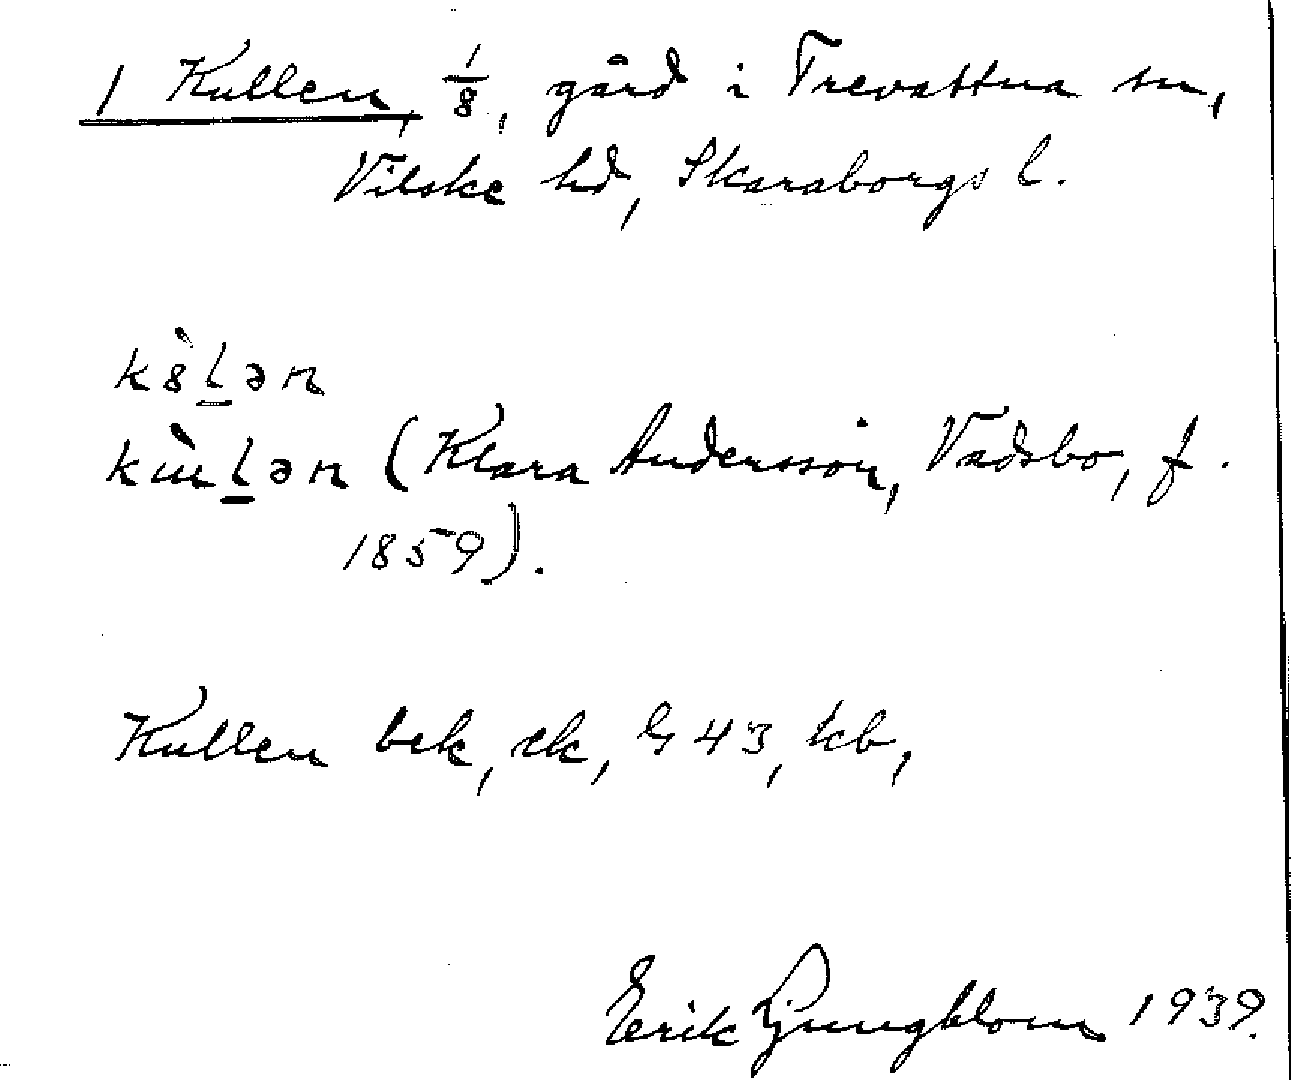 1 Kullen, 1/8, gård i Trevattna sn,
Vilske hd, Skaraborgs l.
k8̀lən
kùlən (Klara Andersson, Vadsbo, f.
1859).
Kullen bek, ek, G 43, kb,
Erik Ljungblom 1939.